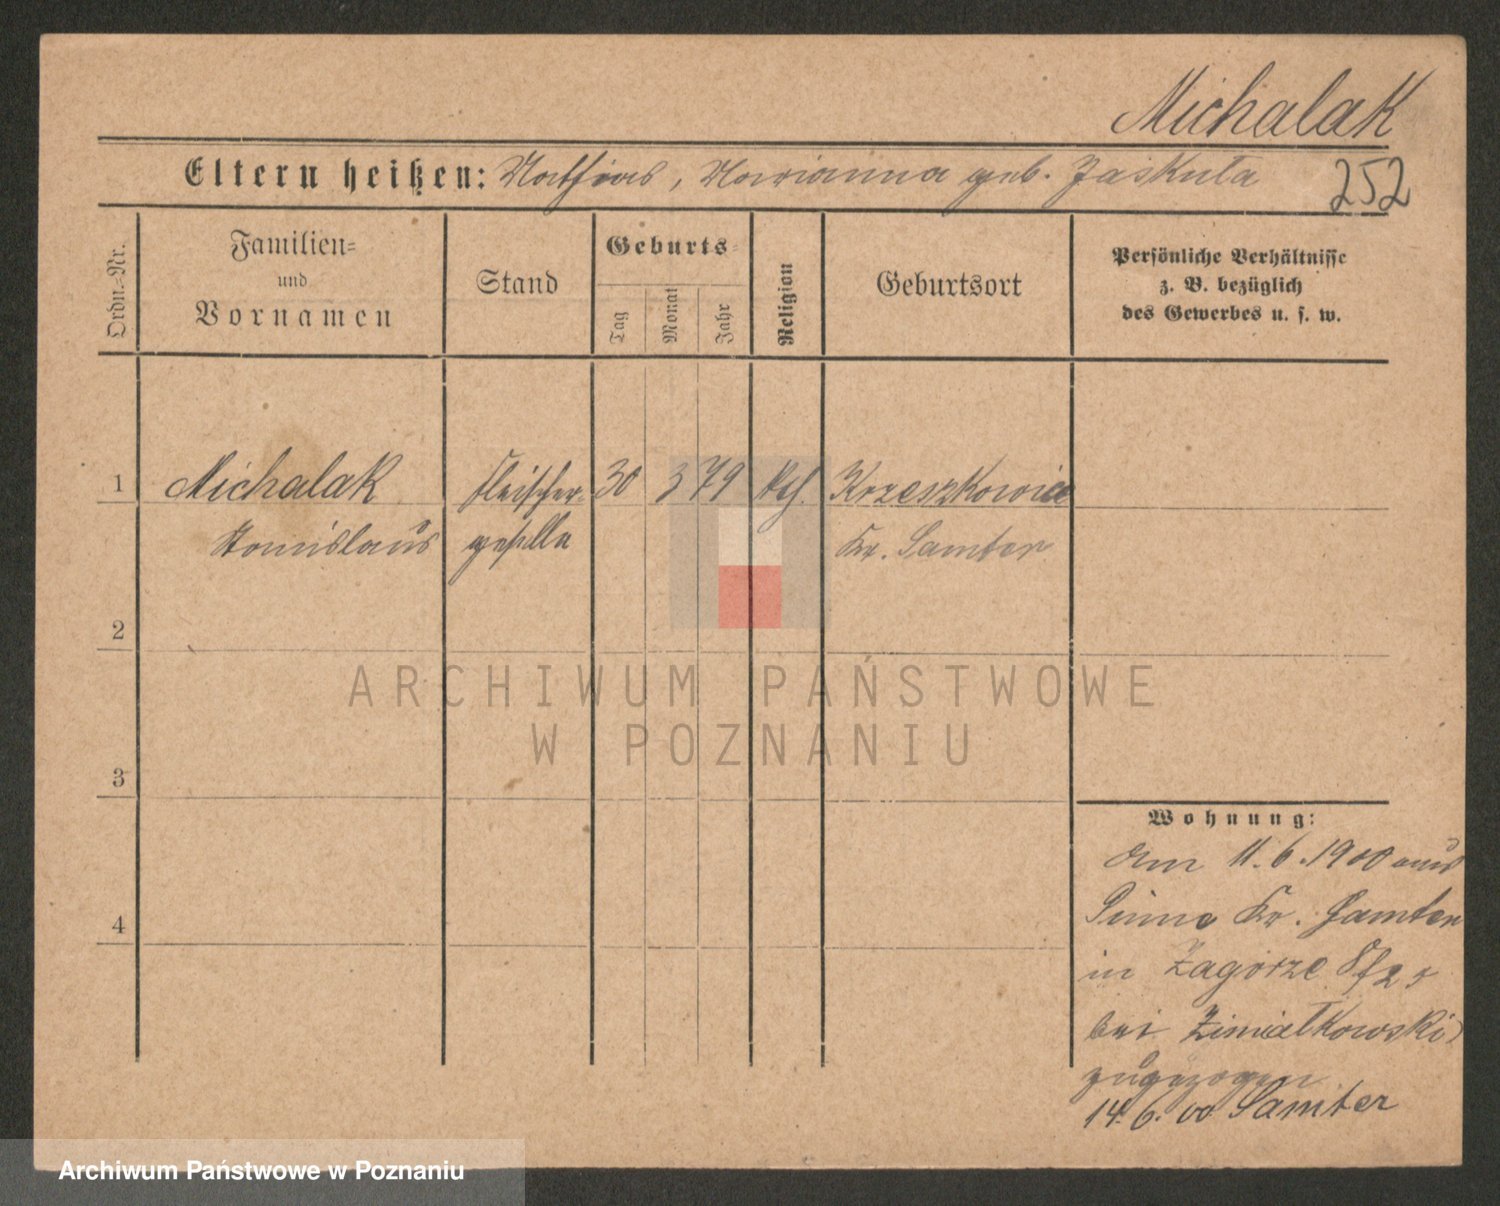 Michalak
Eltern heißen: Mathias, Marianna geb. Jaskuła
252
Ordn.-Nr.
Familien-
und
Vornamen
Stand
Geburts-
Tag
Monat
Jahr
Religion
Geburtsort
Persönliche Verhältnisse
z. B. bezüglich
des Gewerbes u. s. w.
1 Michalak Fleischer- 30 3 79 kth. Krzeszkowice
Stanislaus geselle Kr. Samter
2
3
4
Wohnung:
Am 11.6.1900 aus
Pinne Kr. Samter
in Zagórze
bei Zimiatkowski
zugezogen
14.6.00 Samter
ARCHIWUM PAŃSTWOWE
W POZNANIU
Archiwum Państwowe w Poznaniu